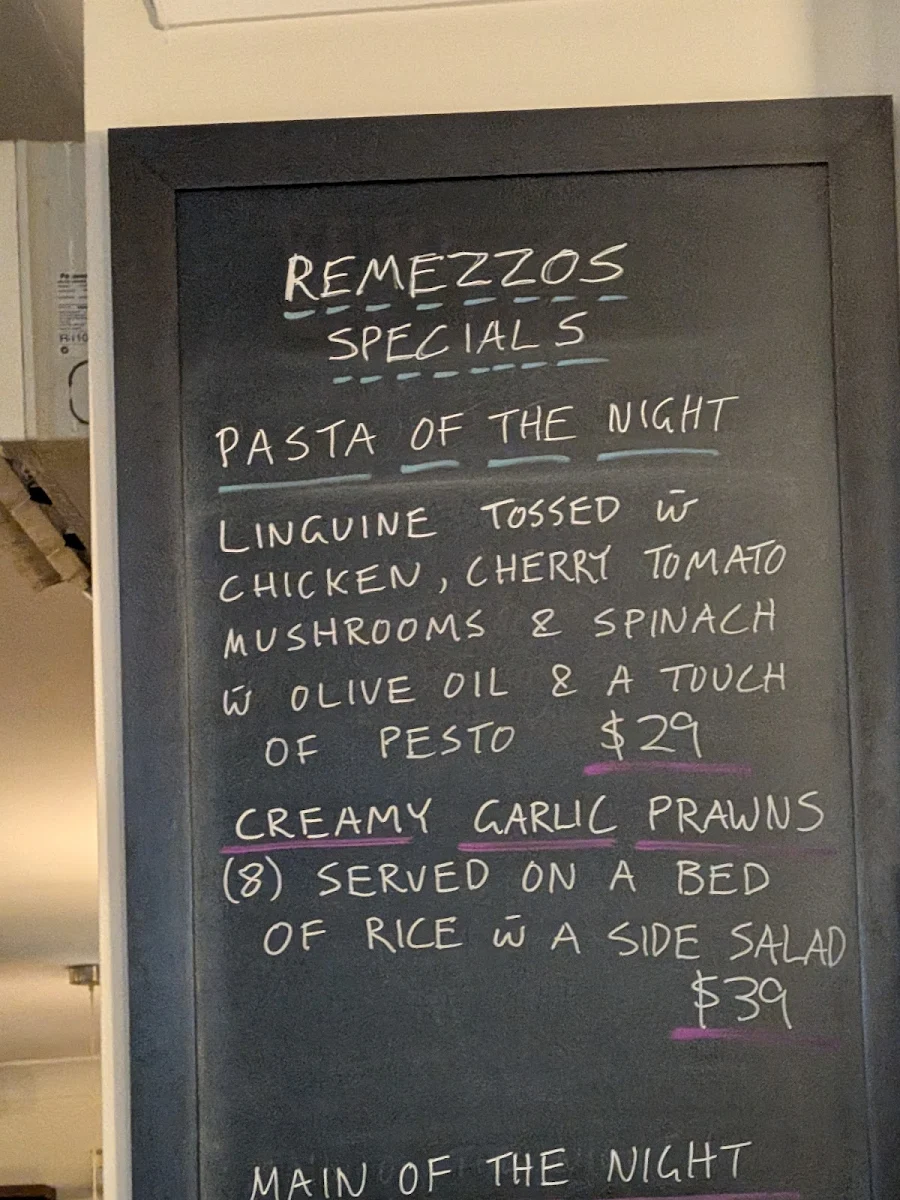 REMEZZOS
SPECIALS
PASTA OF THE NIGHT
LINGUINE TOSSED w̄
CHICKEN, CHERRY TOMATO
MUSHROOMS & SPINACH
w̄ OLIVE OIL & A TOUCH
OF PESTO $29
CREAMY GARLIC PRAWNS
(8) SERVED ON A BED
OF RICE w̄ A SIDE SALAD
$39
MAIN OF THE NIGHT